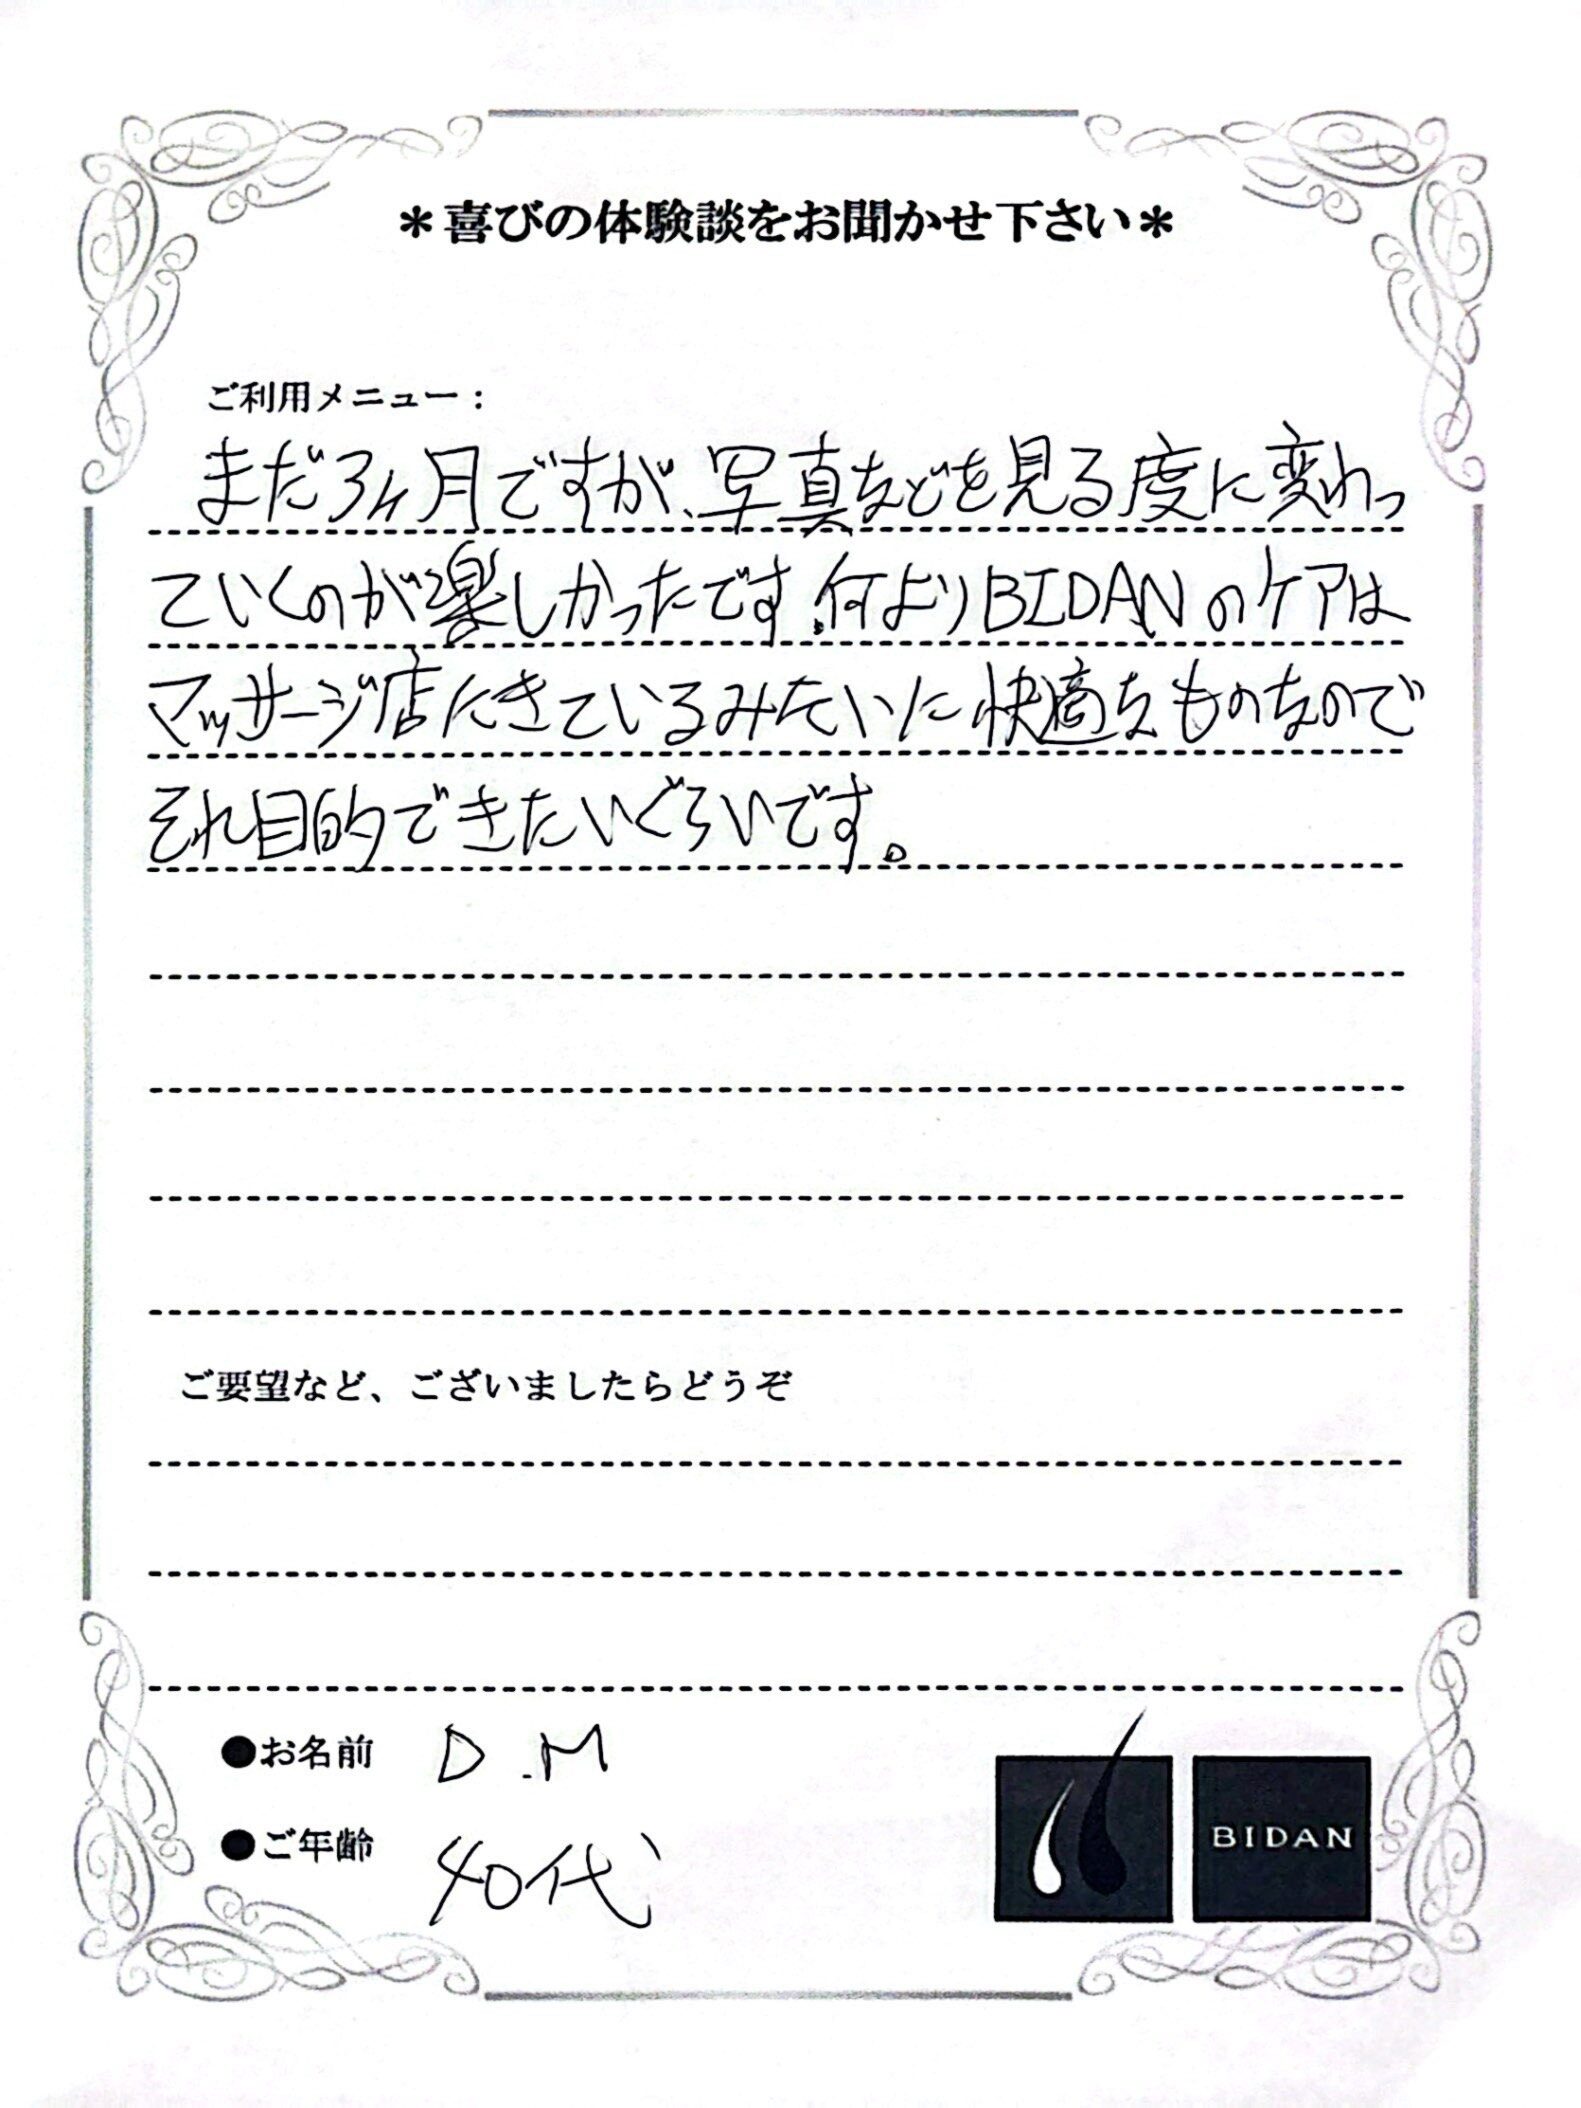 ＊喜びの体験談をお聞かせ下さい＊
ご利用メニュー：
まだ3ヶ月ですが、写真などを見る度に変わっ
ていくのが楽しかったです。何よりBIDANのケアは
マッサージ店にきているみたいに快適なものなので
それ目的できたいぐらいです。
ご要望など、ございましたらどうぞ
●お名前 D.M
●ご年齢 40代
BIDAN